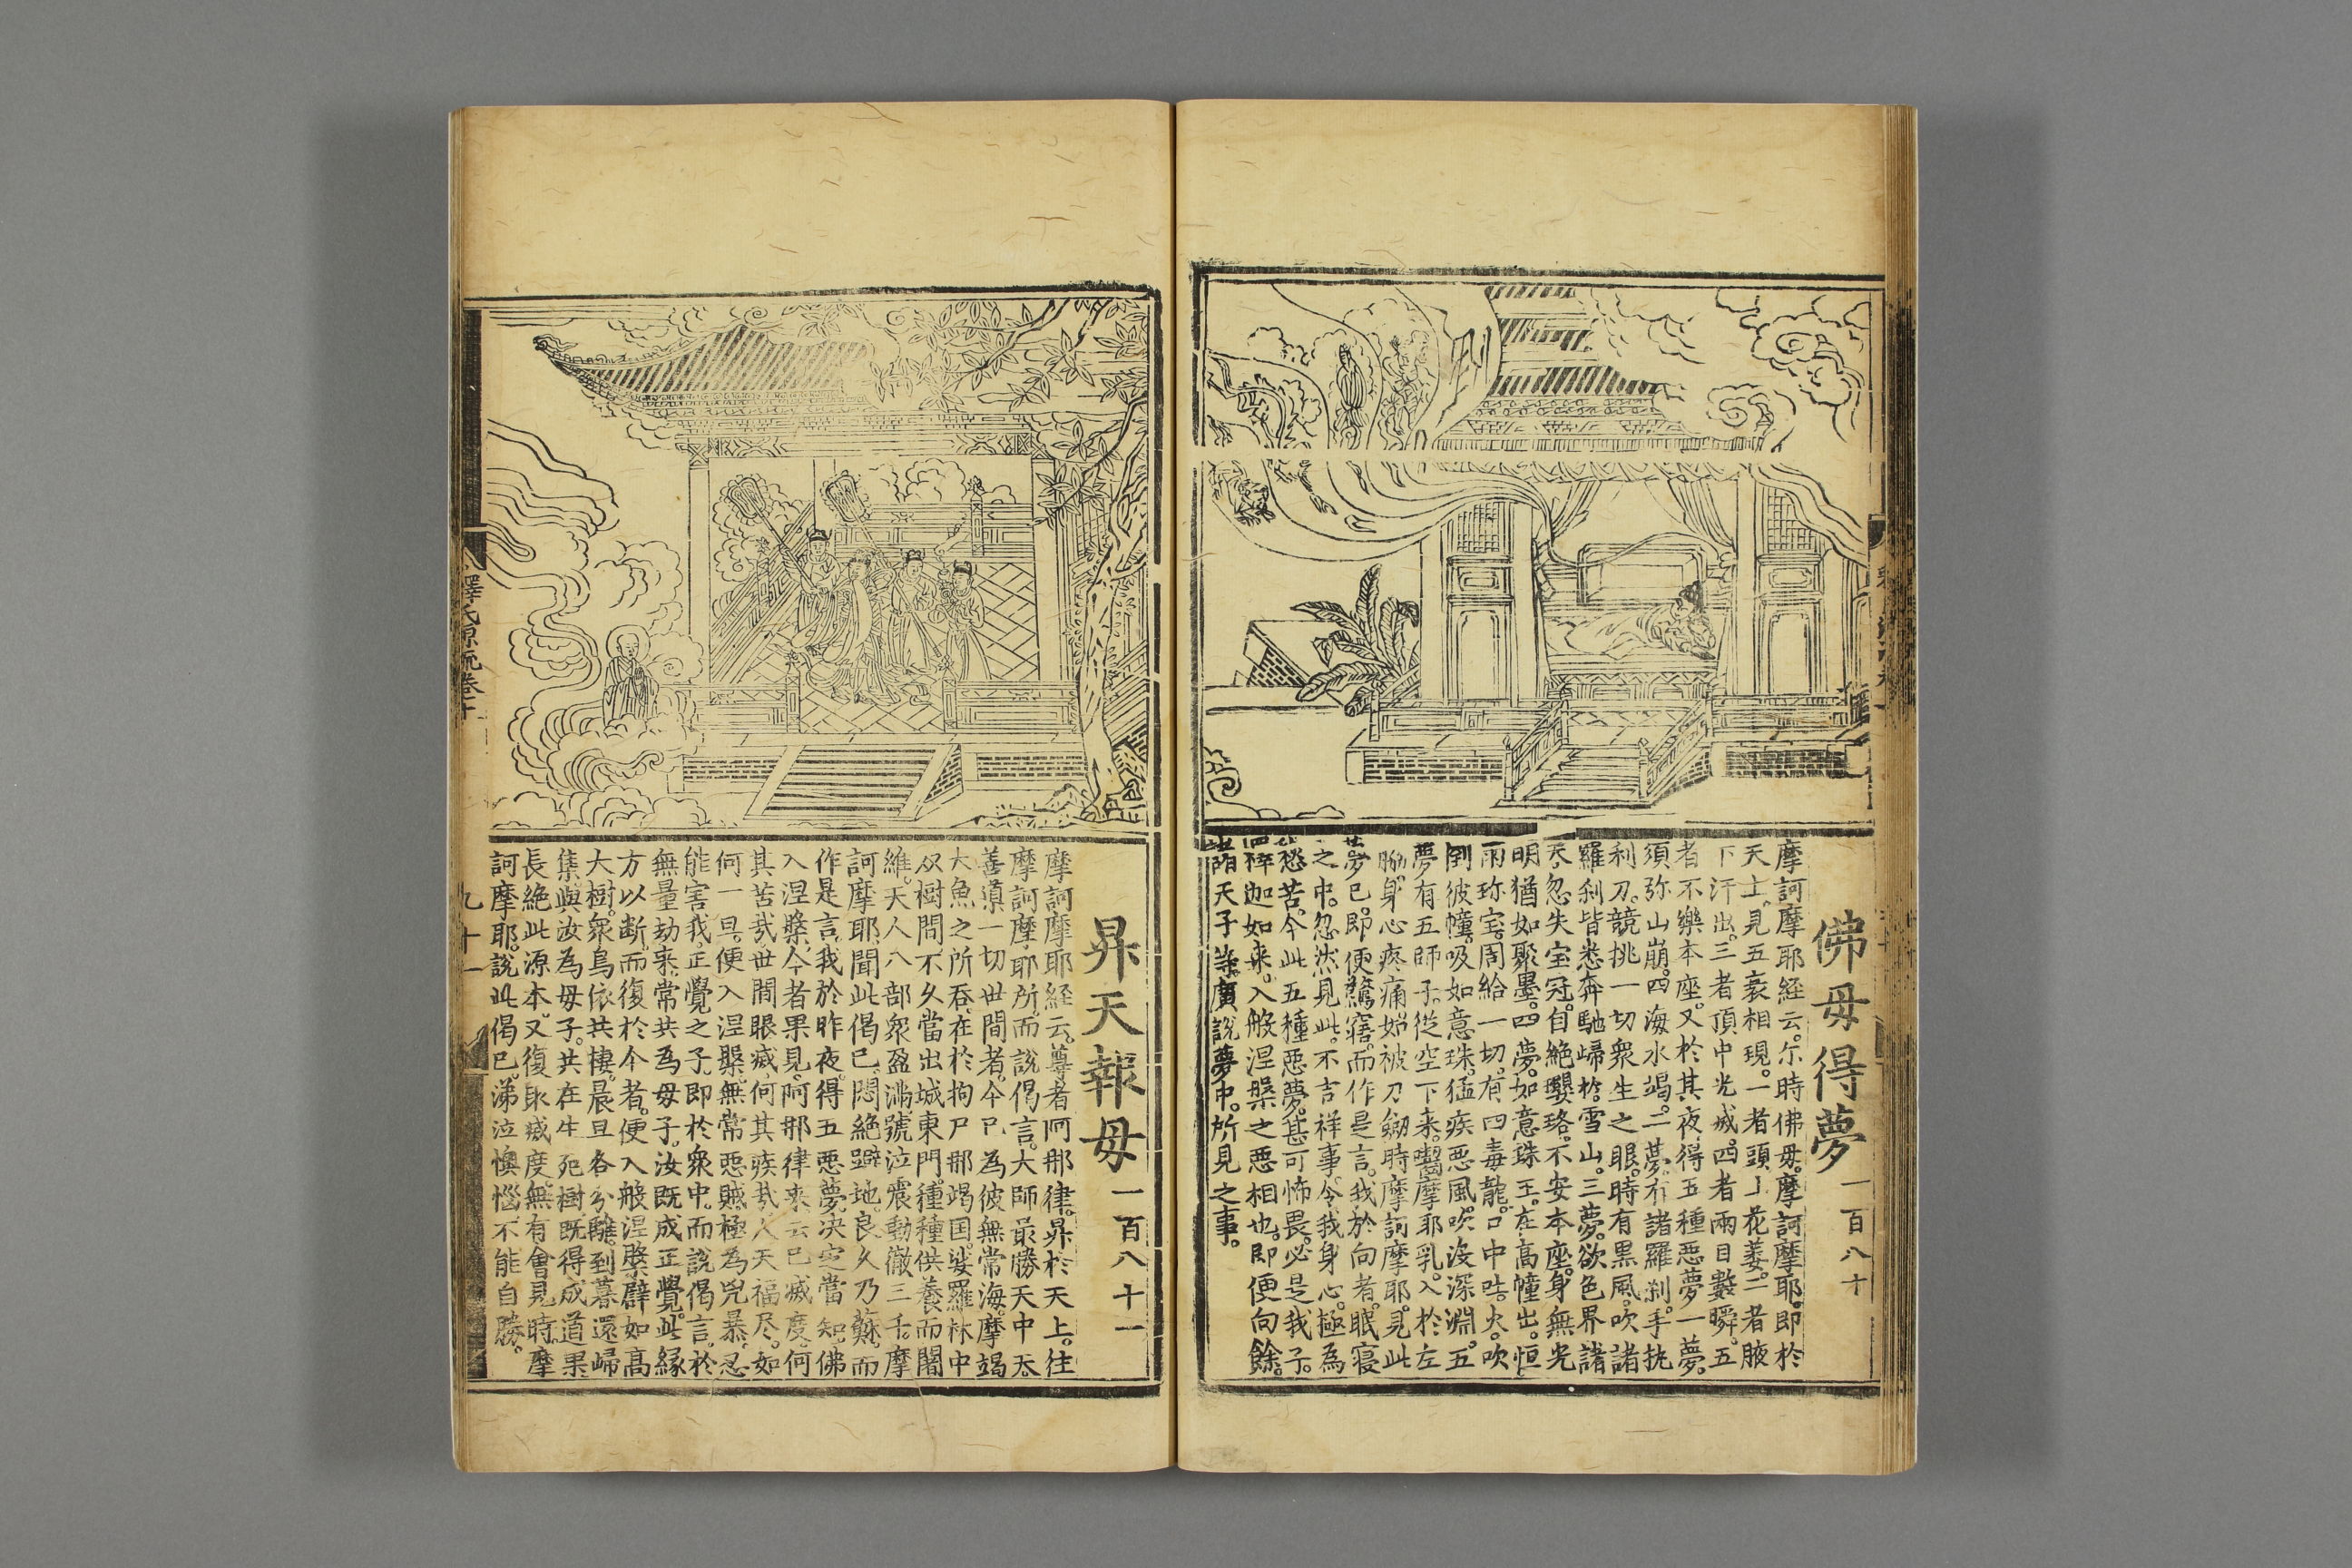 佛母得夢 一百八十
摩訶摩耶経云。尓時佛母。摩訶摩耶。即於
天上。見五衰相現。一者頭上花萎。二者腋
下汗出。三者頂中光滅。四者兩目數瞬。五
者不樂本座。又於其夜。得五種悪夢一夢。
須弥山崩。四海水竭。二夢。有諸羅刹。手执
利刀。競挑一切衆生之眼。時有黒風。吹諸
羅刹皆悉奔馳歸於。雪山。三夢。欲色界諸
天。忽失宝冠。自絶瓔珞。不安本座。身無光
明猶如聚墨。四夢。如意珠王。在高幢出。恒
雨珎宝。周給一切。有四毒龍。口中吐。火。吹
倒彼幢。吸如意珠。猛疾悪風。吹没深淵。五
夢有五師子。從空下来。嚙摩耶乳。入於左
脇。身心疼痛如被刀劒時摩訶摩耶。見此
夢已。即便驚寤。而作是言。我於向者。眠寝
之中。忽然見此。不吉祥事。令我身心。極為
愁苦。今此五種悪夢。甚可怖畏。必是我子。
釋迦如来。入般涅槃之悪相也。即便向餘。
諸天子等廣說夢中。所見之事。
昇天報母 一百八十一
摩訶摩耶経云。尊者阿那律。昇於天上。往
摩訶摩耶所。而說偈言。大師最勝天中天。
善導一切世間者。今已為彼無常海。摩竭
大魚之所吞。在於拘尸那竭国。娑羅林中
双樹間不久當出城東門。種種供養而闍
維。天人八部衆盈滿。號泣震動徹三千。摩
訶摩耶聞此偈已。悶絶躃地。良久乃蘇。而
作是言。我於昨夜。得五悪夢。决定當知。佛
入涅槃。今者果見。阿那律来云已滅度。何
其苦哉世間眼滅。何其疾哉人天福尽。如
何一旦。便入涅槃。無常悪賊。極為兇暴。忍
能害我。正覺之子。即於衆中。而說偈言。於
無量劫来。常共為母子。汝既成正覺。此縁
方以断。而復於今者。便入般涅槃譬如髙
大樹。衆鳥依共棲。晨旦各分離。到暮還歸
集。與汝為母子。共在生死樹。既得成道果
長絶此源本。又復取滅度。無有會見時。摩
訶摩耶。說此偈已。涕泣懊惱不能自勝。
釋氏源流卷十
九十一